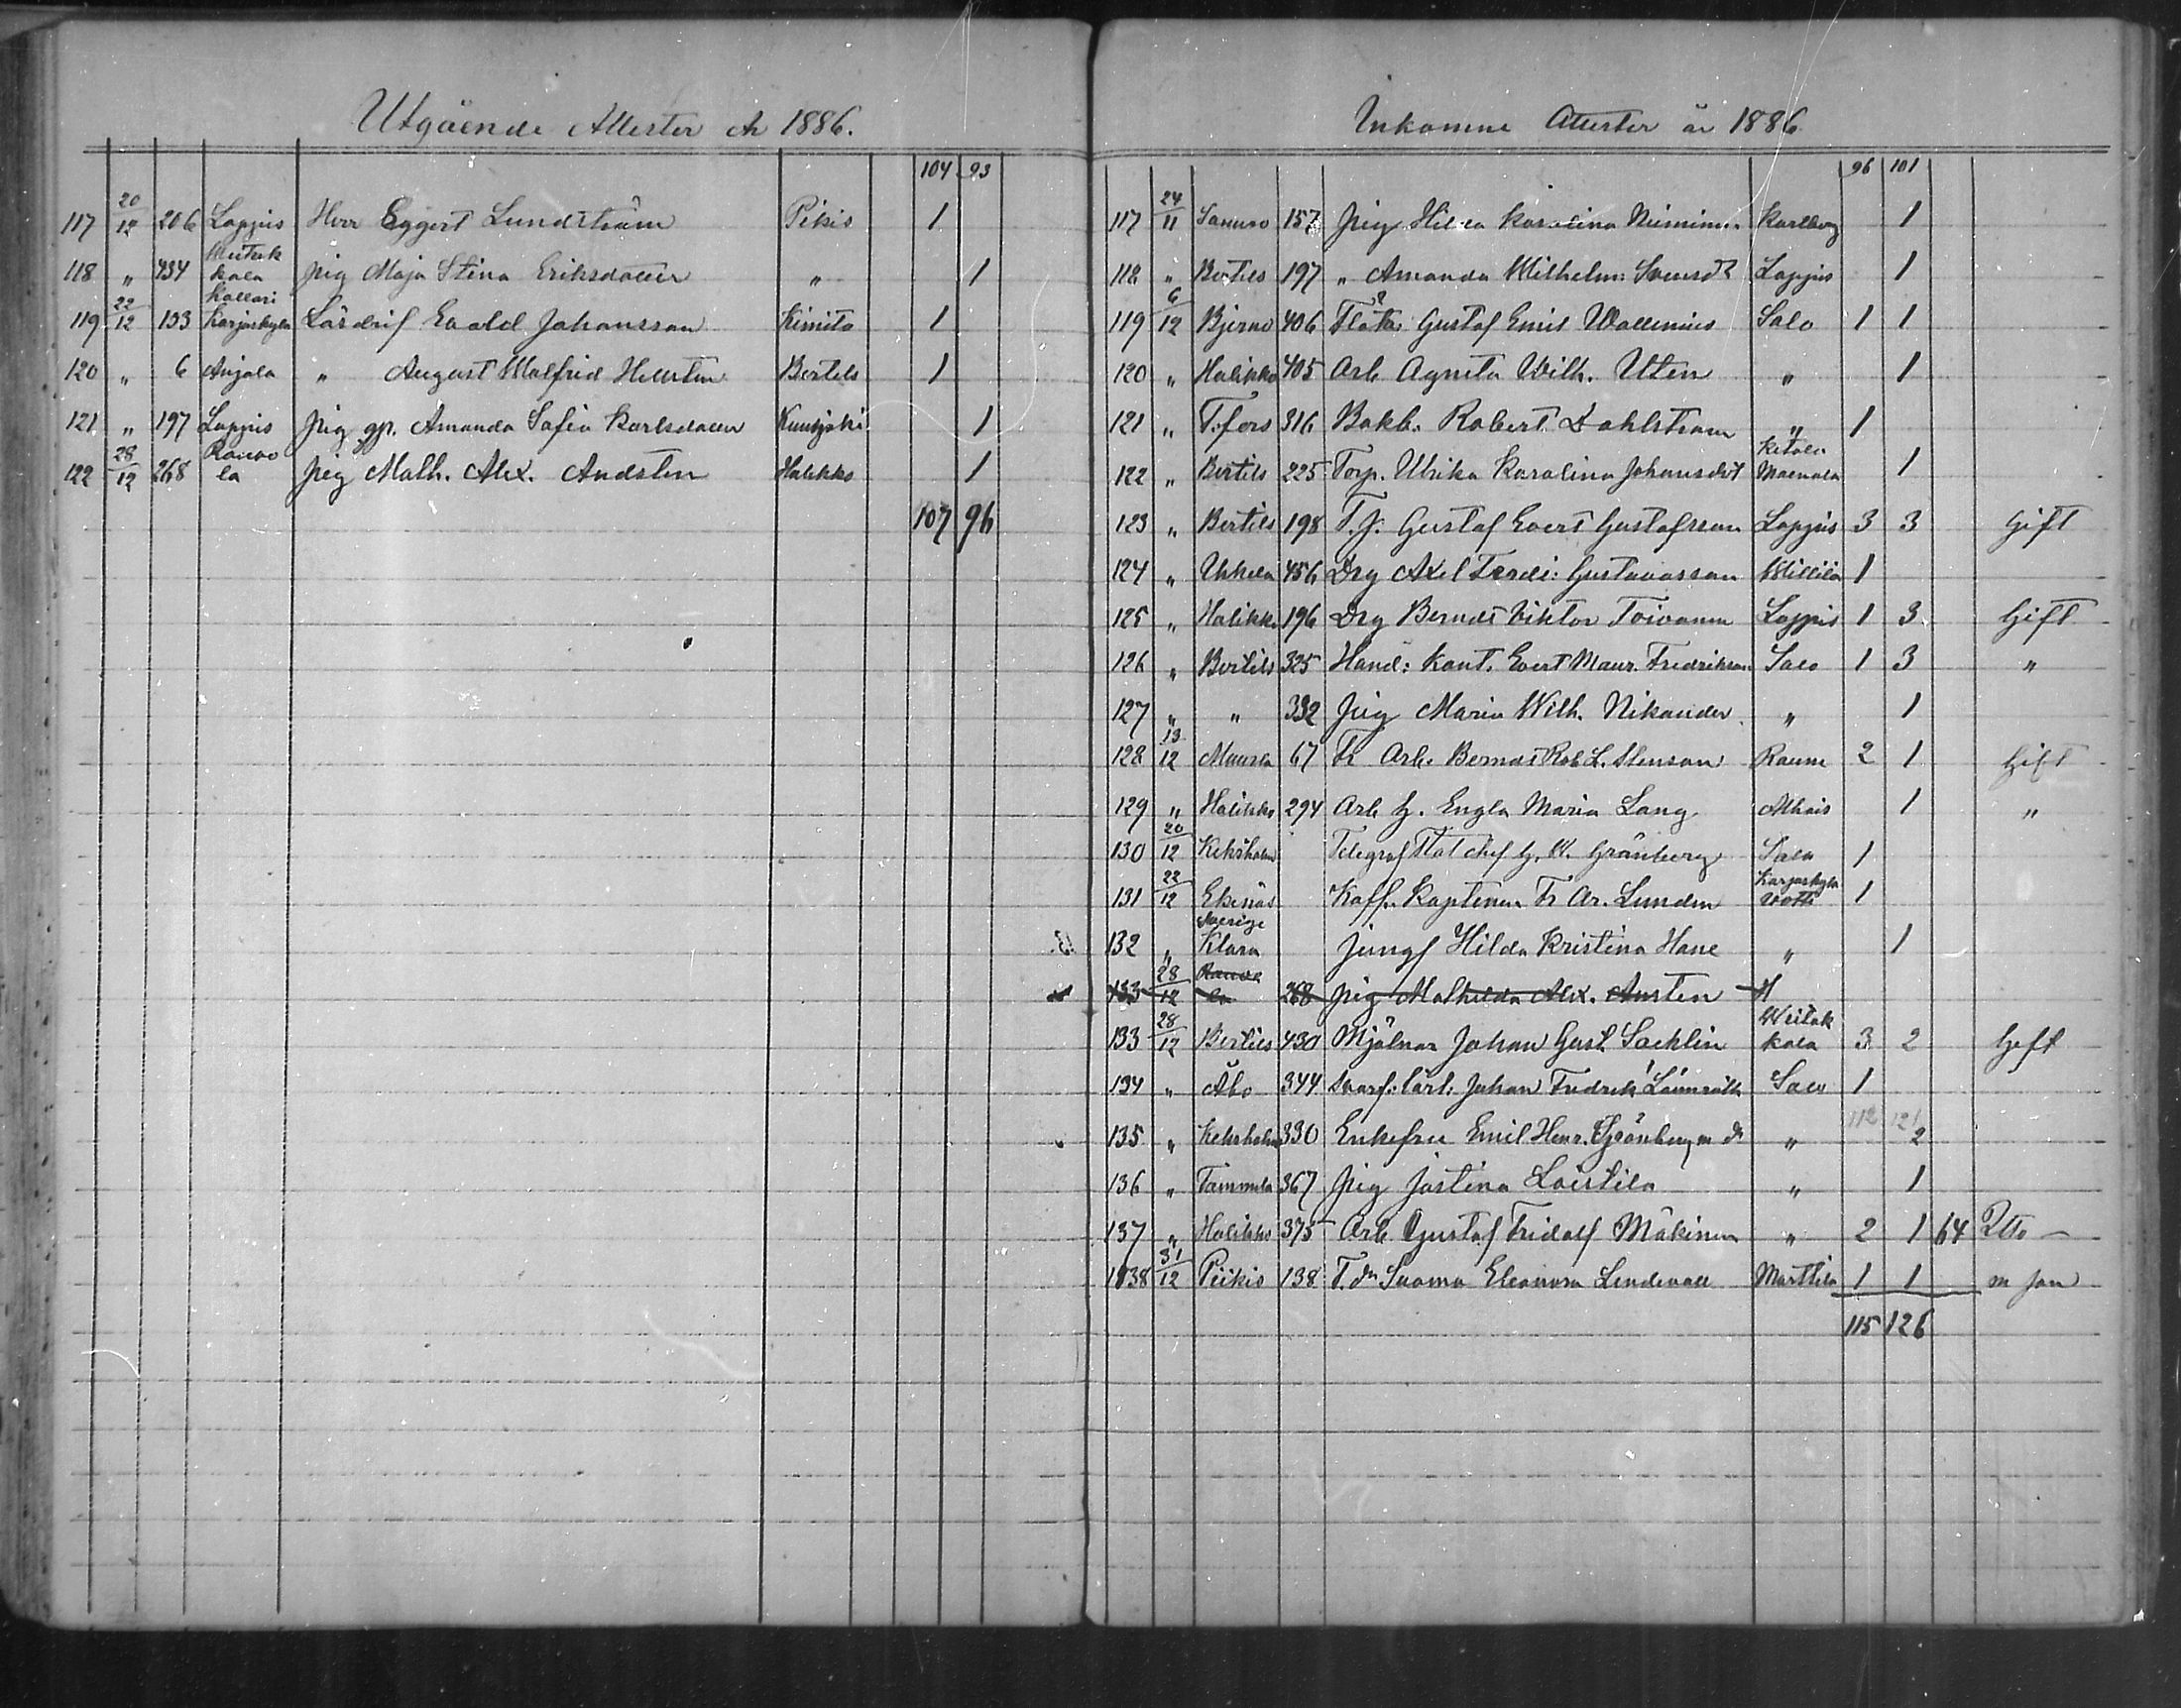 Utgående Attester År 1886.
104 93
117 20/12 206 Lappis Herr Eggert Lundström Pikis 1
118 " 434 kala pig Maja Stina Eriksdotter " 1
119 22/12 133 Karjaskylä Evald Johansson Kimito 1
120 " 6 Anjala " August Walfrid Bertils 1
121 " 197 Lappis pig gp. Amanda Sofia Karlsdotter 1
122 28/12 268 pig Math. Alex. Andsten Halikko 1
107 96
Inkomne Attester år 1886
96 101
117 24/11 157 pig Hilda Karolina Karlberg 1
118 " Bertils 197 " Amanda Wilhelm: Lappis 1
119 6/12 Bjerno 406 Gustaf Emil Wallenius Salo 1 1
120 " Halikko 405 Arb Agneta Wilh. Uten " 1
121 " T.fors 316 Bokb. Robert Dahlström " 1
Ketola
122 " Bertils 225 Torp. Ulrika Karolina Johansdot 1
123 " Bertils 198 T.J. Gustaf Evert Gustafsson Lappis 3 3 Gift
124 " Uskela 456 Drg Axel Ferdi: Gustavsson 1
125 " Halikko 196 Drg Berndt Viktor Toivonen Lappis 1 3 Gift
126 " Bertils 325 Hand: Kant. Evert Maur. Fredrikson Salo 1 3 "
127 " " 332 pig Maria Wilh. Nikander " 1
128 13/12 67 Arb. Bernat Rob L. Stenson 2 1 Gift
129 " Halikko 294 Arb h. Engla Maria Lang 1 "
130 20/12 Keksholm Telegraf Stat chef G. W. Grönberg Salo 1
Karjaskylä
131 22/12 Ekenäs Kaptenen Fr Ar. Lunden 1
Sverige
132 " Klara jungf Hilda Kristina Hane " 1
133 28/12 268 pig Mathilda Alex. Austen
133 28/12 Bertils 430 Mjölnar Johan Gust. kala 3 2 Gift
134 " Åbo 344 Johan Fredrik Salo 1
112 121
135 " Kekshol 330 Enkefru Emil Henr. Grönberg m dr " 2
136 " Tammela 367 pig Justina " 1
137 " Halikko 375 Arb Gustaf Fridolf Mäkinen " 2 1 64
138 31/12 Piikis 138 Suoma Eleonora Lindevall Marttila 1 1 m
115 126